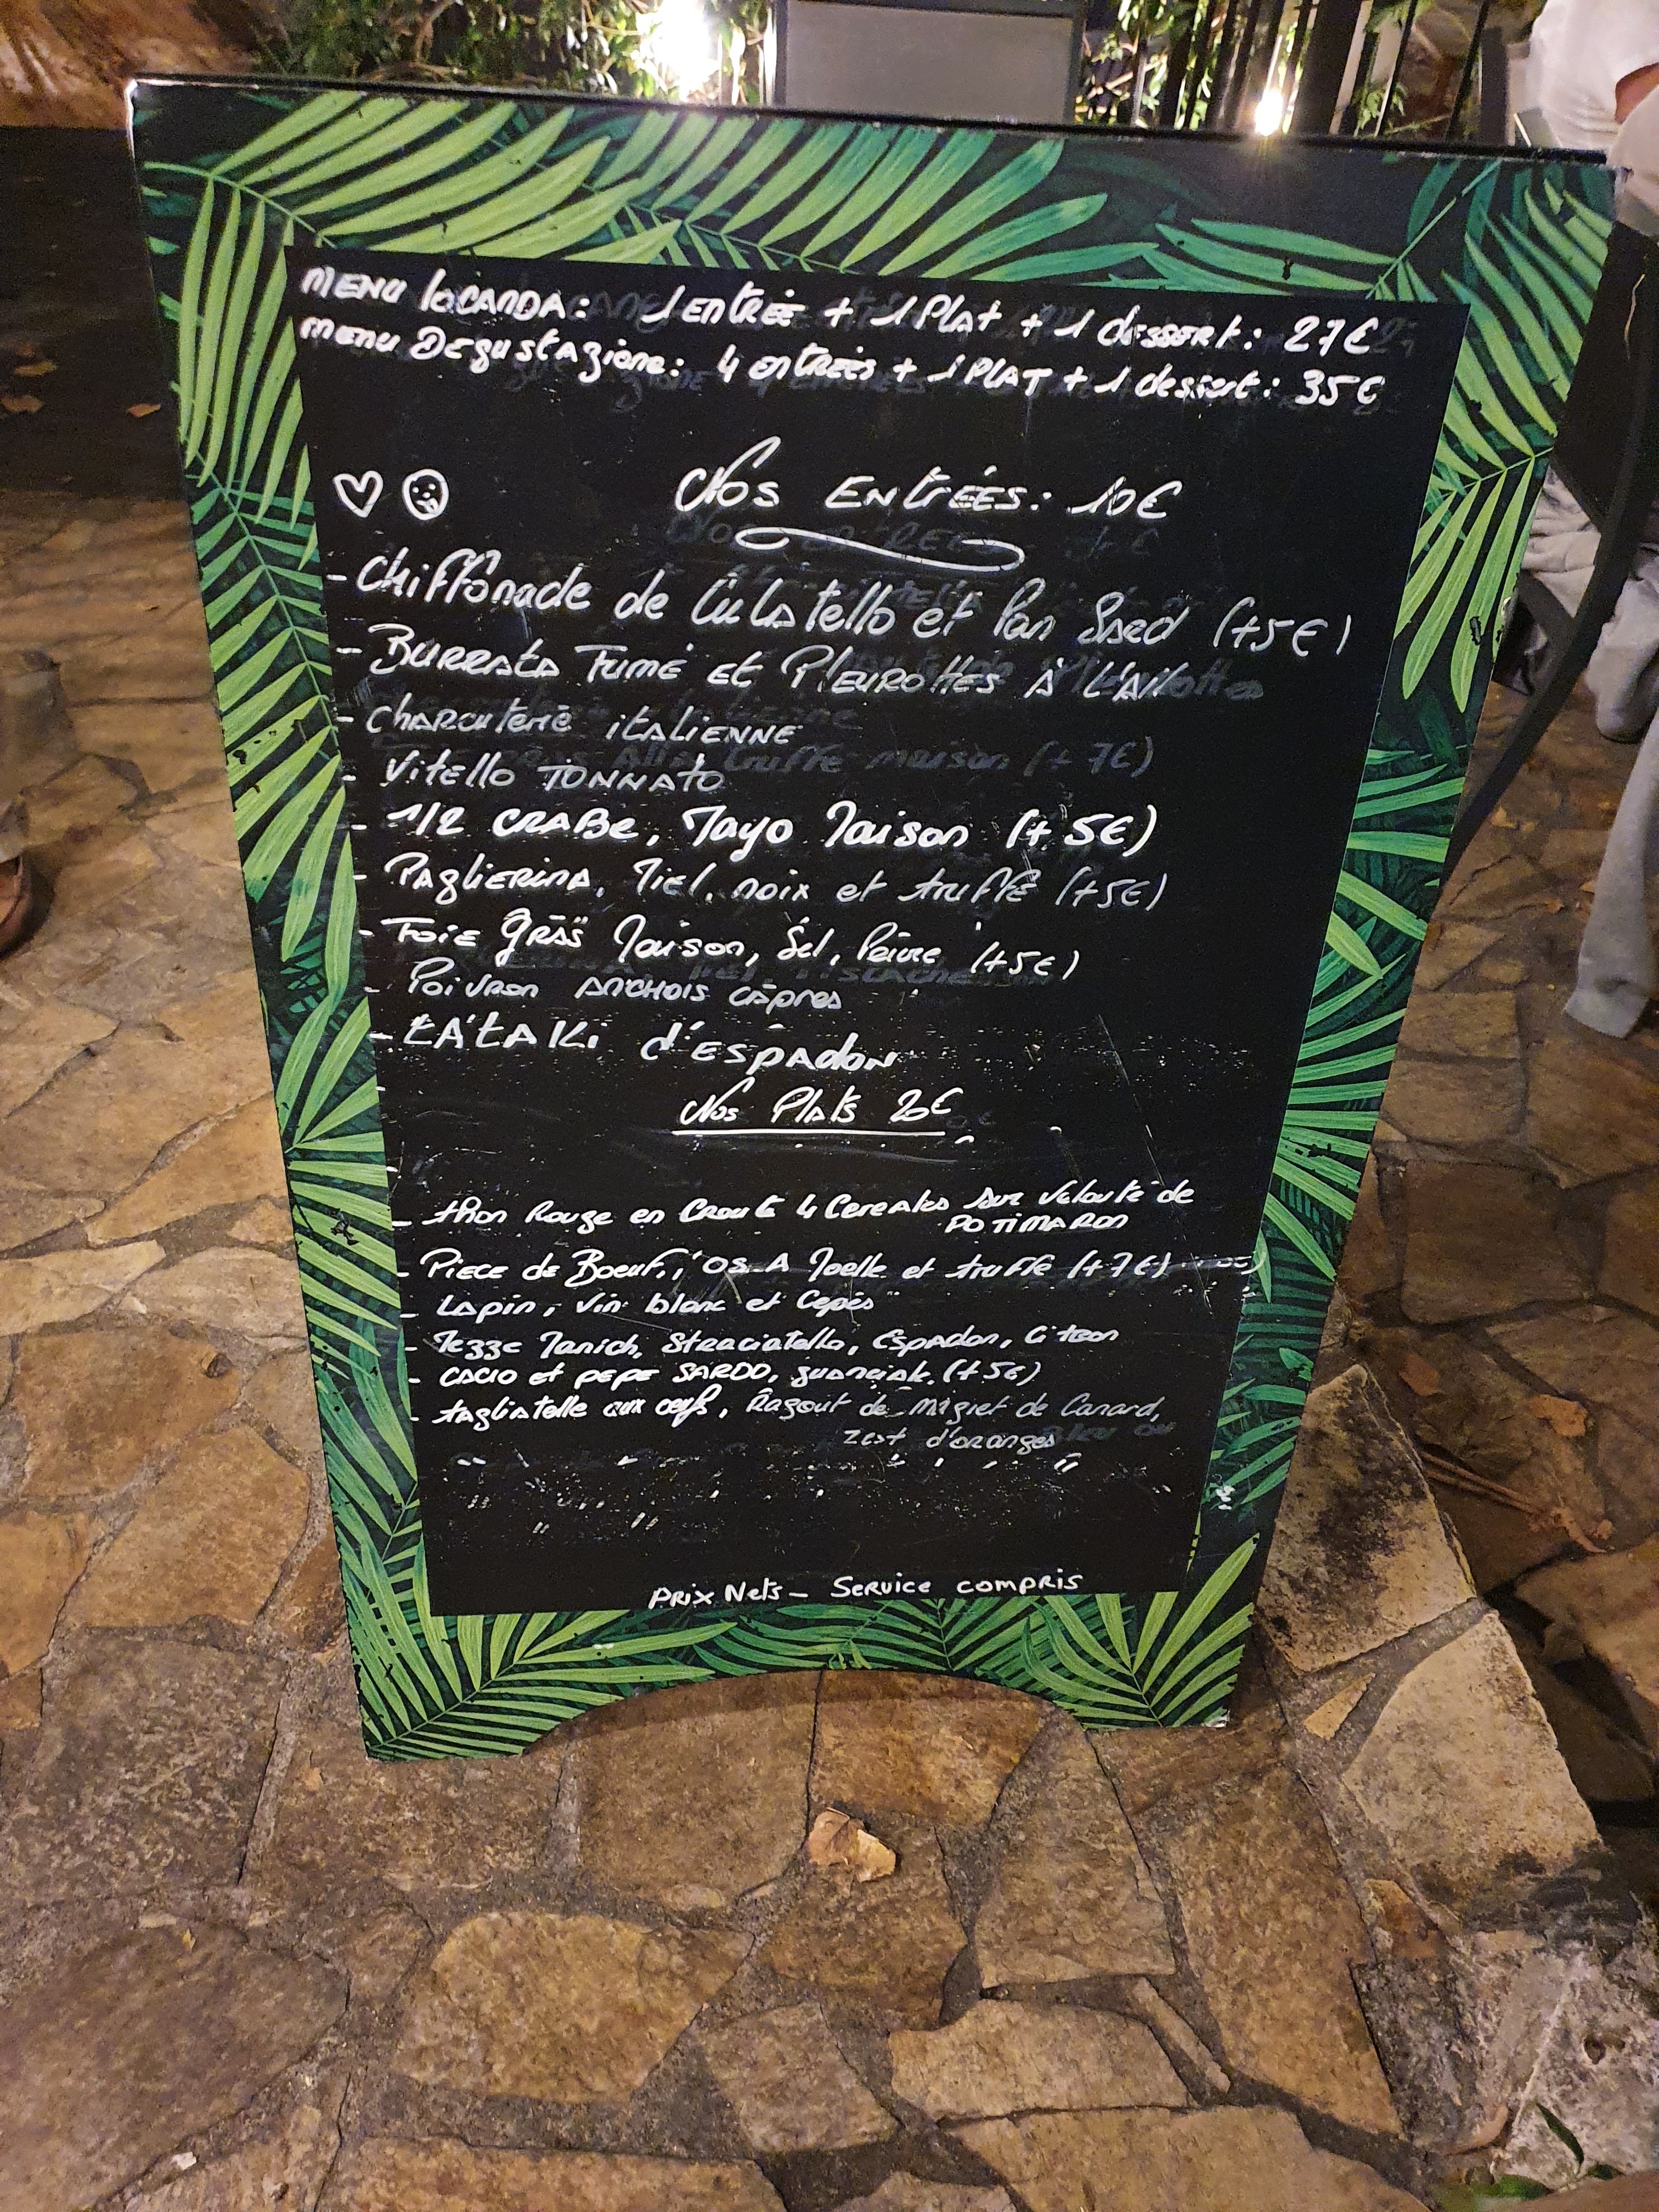 MENU LOCANDA: 1 ENTRÉE + 1 PLAT + 1 dESSERT: 27€
MENU DEGUSTAZIONE: 4 ENTRÉES + 1 PLAT + 1 dessert: 35€
Nos ENTRÉES: 10€
- Chiffonade de Culatello et Pan Sard (+5€)
- BURRATA FUMÉ ET PLEUROTTES À L'AIL
- CHARCUTERIE ITALIENNE
- Vitello TONNATO
- 1/2 CRABE, Mayo Maison (+5€)
- PAGLIERINA, Miel, noix et truffe (+5€)
- FOIE GRAS Maison, Sel, Poivre (+5€)
- POIVRON ANCHOIS CÂPRES
- TATAKI d'ESPADON
Nos Plats 20€
- thon Rouge en Croute 4 Cereales sur Velouté de
POTIMARON
- PIECE de Boeuf, OS A Moelle et truffe (+7€)
- LAPIN, Vin blanc et Cepes
- Mezze Manich, Straciatella, Espadon, Citron
- CACIO et PEPE SARDO, guanciale (+5€)
- tagliatelle aux oeufs, Ragout de Magret de Canard,
Zest d'oranges
PRIX Nets - SERVICE COMPRIS